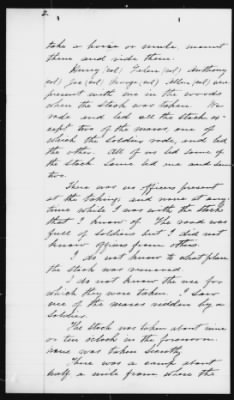 2.
take a horse or mule, mount
them and ride them.
Henry (col) (col) Anthony
(col) Joe (col) George (col) Allen (col) were
present with me in the woods
when the stock was taken. We
rode and led all the stock ex-
cept two of the mares, one of
which the soldier rode, and led
the other. All of us led some of
the stock some led one and some
two.
There was no officers present
at the taking, and none at any
time while I was with the stock
that I know of. The road was
full of soldiers but I did not
know officers from others.
I do not know to what place
the stock was removed.
I do not know the use for
which they were taken. I saw
one of the mares ridden by a
soldier.
The stock was taken about nine
or ten oclock in the forenoon.
None was taken secretly.
There was a camp about
half a mile from where the